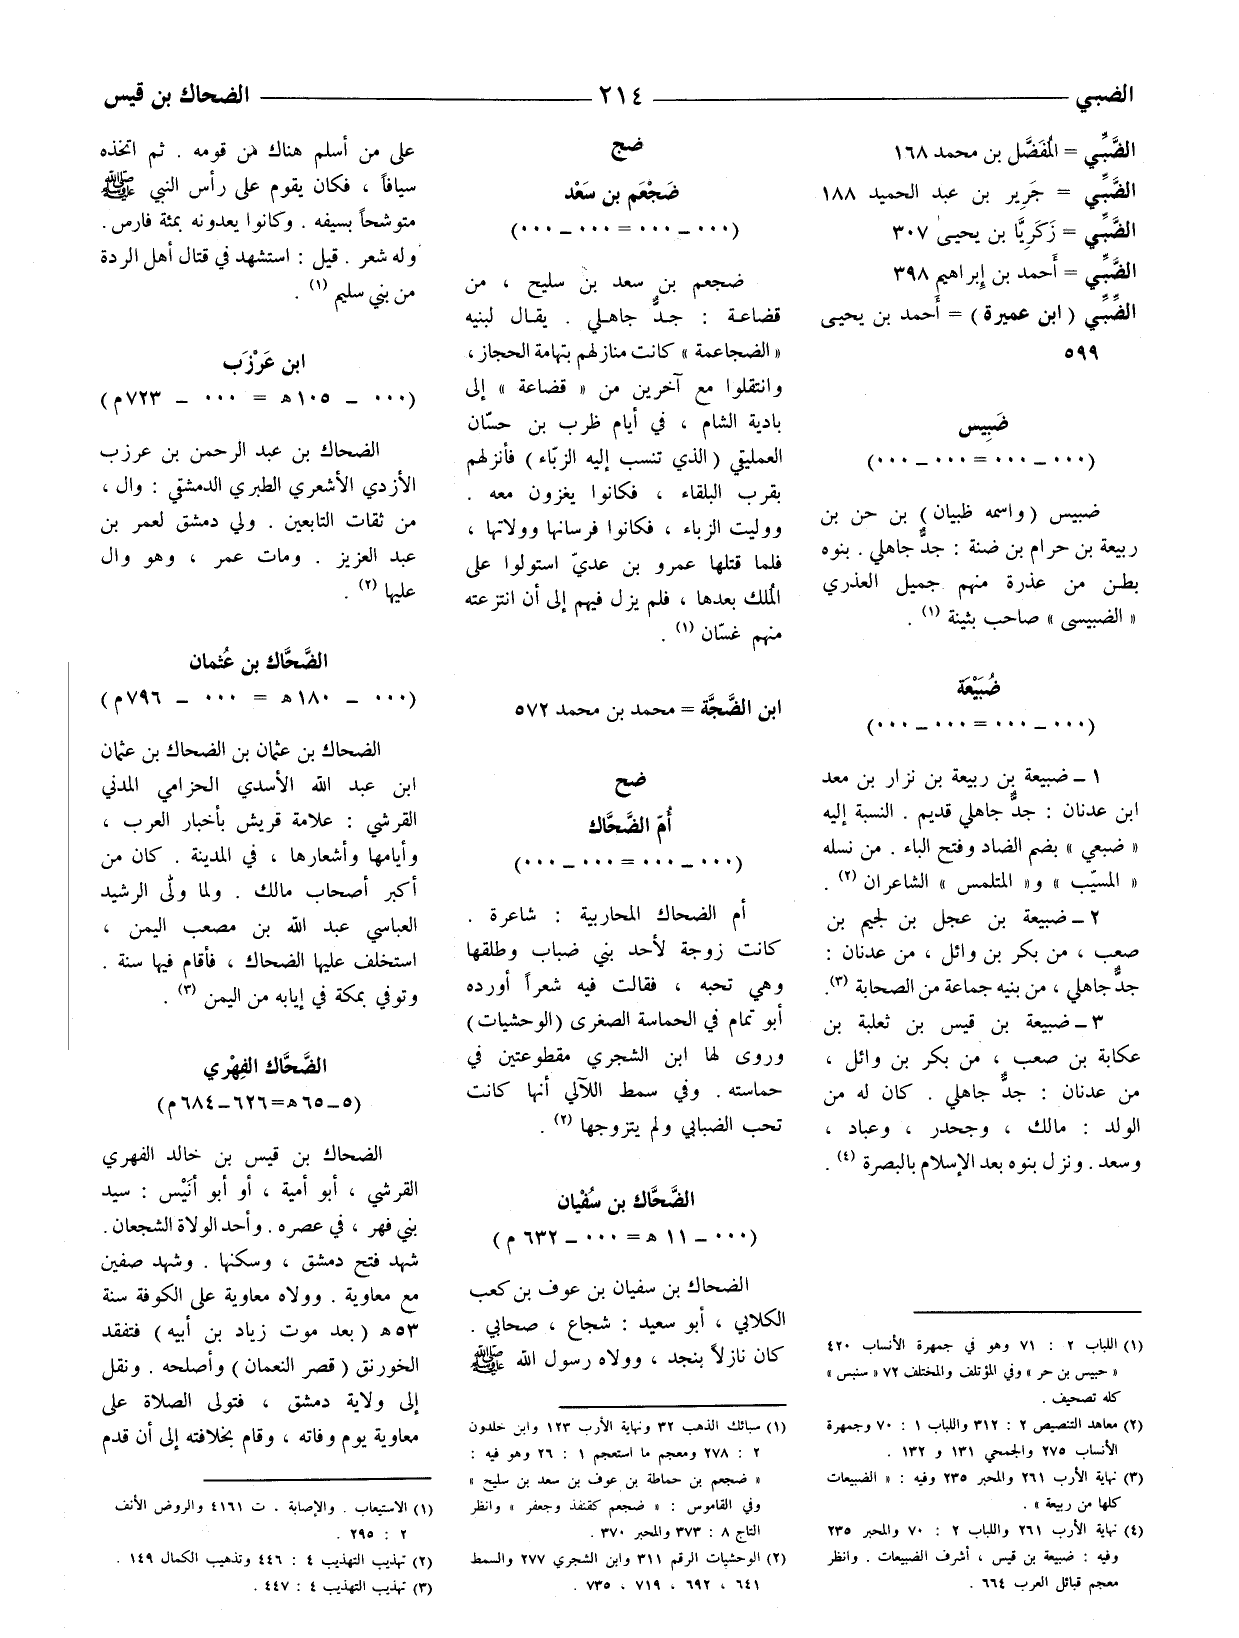 الضبي
٢١٤
الضحاك بن قيس
الضَّبِّي = المُفَضَّل بن محمد ١٦٨
الضَّبِّي = جَرِير بن عبد الحميد ١٨٨
الضَّبِّي = زَكَرِيَّا بن يحيى ٣٠٧
الضَّبِّي = أَحمد بن إِبراهيم ٣٩٨
الضَّبِّي ( ابن عميرة ) = أَحمد بن يحيى
٥٩٩
ضَبِيس
(٠٠٠ ــ ٠٠٠ = ٠٠٠ ــ ٠٠٠)
ضبيس (واسمه ظبيان) بن حن بن
ربيعة بن حرام بن ضنة : جدٌّ جاهلي . بنوه
بطن من عذرة منهم جميل العذري
« الضبيسى » صاحب بثينة (١) .
ضُبَيْعَة
(٠٠٠ ــ ٠٠٠ = ٠٠٠ ــ ٠٠٠)
١ ــ ضبيعة بن ربيعة بن نزار بن معد
ابن عدنان : جدٌّ جاهلي قديم . النسبة إليه
« ضبعي » بضم الضاد وفتح الباء . من نسله
« المسيّب » و« المتلمس » الشاعران (٢) .
٢ ــ ضبيعة بن عجل بن لجيم بن
صعب ، من بكر بن وائل ، من عدنان :
جدٌّ جاهلي ، من بنيه جماعة من الصحابة (٣).
٣ ــ ضبيعة بن قيس بن ثعلبة بن
عكابة بن صعب ، من بكر بن وائل ،
من عدنان : جدٌّ جاهلي . كان له من
الولد : مالك ، وجحدر ، وعباد ،
وسعد . ونزل بنوه بعد الإسلام بالبصرة (٤) .
(١) اللباب ٢ : ٧١ وهو في جمهرة الأنساب ٤٢٠
« حبيس بن حر » وفي المؤتلف والمختلف ٧٢ « سنبس »
كله تصحيف .
(٢) معاهد التنصيص ٢ : ٣١٢ واللباب ١ : ٧٠ وجمهرة
الأنساب ٢٧٥ والجمحي ١٣١ و ١٣٢ .
(٣) نهاية الأرب ٢٦١ والمحبر ٢٣٥ وفيه : « الضبيعات
كلها من ربيعة » .
(٤) نهاية الأرب ٢٦١ واللباب ٢ : ٧٠ والمحبر ٢٣٥
وفيه : ضبيعة بن قيس ، أشرف الضبيعات . وانظر
معجم قبائل العرب ٦٦٤ .
ضج
ضَجْعَم بن سَعْد
(٠٠٠ ــ ٠٠٠ = ٠٠٠ ــ ٠٠٠)
ضجعم بن سعد بن سليح ، من
قضاعة : جدٌّ جاهلي . يقال لبنيه
« الضجاعمة » كانت منازلهم بتهامة الحجاز ،
وانتقلوا مع آخرين من « قضاعة » إلى
بادية الشام ، في أيام ظرب بن حسّان
العمليقي (الذي تنسب إليه الزبّاء) فأنزلهم
بقرب البلقاء ، فكانوا يغزون معه .
ووليت الزباء ، فكانوا فرسانها وولاتها ،
فلما قتلها عمرو بن عديّ استولوا على
المُلك بعدها ، فلم يزل فيهم إلى أن انتزعته
منهم غسّان (١) .
ابن الضَّجَّة = محمد بن محمد ٥٧٢
ضح
أُمّ الضَّحَّاك
(٠٠٠ ــ ٠٠٠ = ٠٠٠ ــ ٠٠٠)
أم الضحاك المحاربية : شاعرة .
كانت زوجة لأحد بني ضباب وطلقها
وهي تحبه ، فقالت فيه شعراً أورده
أبو تمام في الحماسة الصغرى (الوحشيات)
وروى لها ابن الشجري مقطوعتين في
حماسته . وفي سمط اللآلي أنها كانت
تحب الضبابي ولم يتزوجها (٢) .
الضَّحَّاك بن سُفْيان
(٠٠٠ ــ ١١ ه = ٠٠٠ ــ ٦٣٢ م)
الضحاك بن سفيان بن عوف بن كعب
الكلابي ، أبو سعيد : شجاع ، صحابي .
كان نازلاً بنجد ، وولاه رسول الله ﷺ
(١) سبائك الذهب ٣٢ ونهاية الأرب ١٢٣ وابن خلدون
٢ : ٢٧٨ ومعجم ما استعجم ١ : ٢٦ وهو فيه :
« ضجعم بن حماطة بن عوف بن سعد بن سليح »
وفي القاموس : « ضجعم كقنفذ وجعفر » وانظر
التاج ٨ : ٣٧٣ والمحبر ٣٧٠ .
(٢) الوحشيات الرقم ٣١١ وابن الشجري ٢٧٧ والسمط
٦٤١ ، ٦٩٢ ، ٧١٩ ، ٧٣٥ .
على من أسلم هناك من قومه . ثم اتخذه
سيافاً ، فكان يقوم على رأس النبي ﷺ
متوشحاً بسيفه . وكانوا يعدونه بمئة فارس .
وله شعر . قيل : استشهد في قتال أهل الردة
من بني سليم (١) .
ابن عَرْزَب
(٠٠٠ ــ ١٠٥ ه = ٠٠٠ ــ ٧٢٣م)
الضحاك بن عبد الرحمن بن عرزب
الأزدي الأشعري الطبري الدمشقي : وال ،
من ثقات التابعين . ولي دمشق لعمر بن
عبد العزيز . ومات عمر ، وهو وال
عليها (٢) .
الضَّحَّاك بن عُثمان
(٠٠٠ ــ ١٨٠ ه = ٠٠٠ ــ ٧٩٦م)
الضحاك بن عثمان بن الضحاك بن عثمان
ابن عبد الله الأسدي الحزامي المدني
القرشي : علامة قريش بأخبار العرب ،
وأيامها وأشعارها ، في المدينة . كان من
أكبر أصحاب مالك . ولما ولّى الرشيد
العباسي عبد الله بن مصعب اليمن ،
استخلف عليها الضحاك ، فأقام فيها سنة .
وتوفي بمكة في إيابه من اليمن (٣) .
الضَّحَّاك الفِهْري
(٥ ــ ٦٥ ه = ٦٢٦ ــ ٦٨٤ م)
الضحاك بن قيس بن خالد الفهري
القرشي ، أبو أمية ، أو أبو أنَيْس : سيد
بني فهر ، في عصره . وأحد الولاة الشجعان .
شهد فتح دمشق ، وسكنها . وشهد صفين
مع معاوية . وولاه معاوية على الكوفة سنة
٥٣ ه (بعد موت زياد بن أبيه) فتفقد
الخورنق (قصر النعمان) وأصلحه . ونقل
إلى ولاية دمشق ، فتولى الصلاة على
معاوية يوم وفاته ، وقام بخلافته إلى أن قدم
(١) الاستيعاب . والإصابة . ت ٤١٦١ والروض الأنف
٢ : ٢٩٥ .
(٢) تهذيب التهذيب ٤ : ٤٤٦ وتذهيب الكمال ١٤٩ .
(٣) تهذيب التهذيب ٤ : ٤٤٧ .